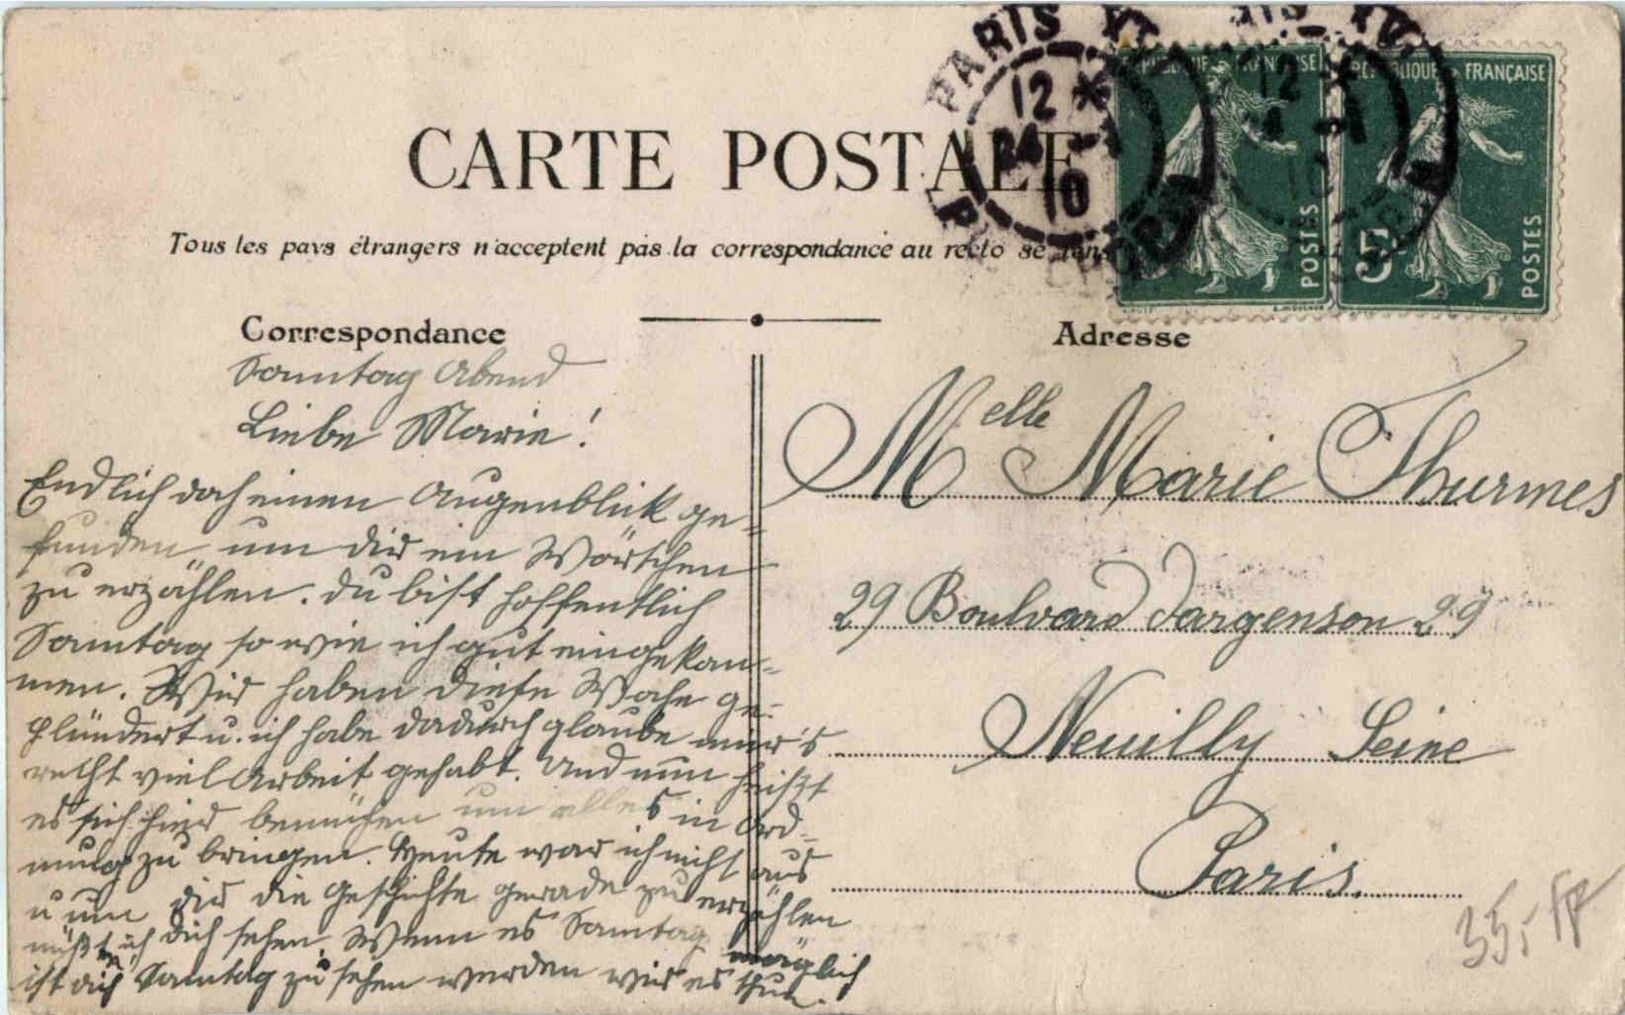 CARTE POSTALE
Tous les pays étrangers n'acceptent pas la correspondance au recto se rens
PARIS XV
12
24 -1
10
RÉPUBLIQUE FRANÇAISE
POSTES
RÉPUBLIQUE FRANÇAISE
5c
POSTES
Correspondance
Adresse
Sonntag Abend
Liebe Marie!
Endlich doch einen Augenblick ge=
funden um dir ein Wörtchen
zu erzählen. Du bist hoffentlich
Sonntag so wie ich gut eingekom=
men. Wir haben diese Woche ge=
plündert u. ich habe dadurch glaube mir's
recht viel Arbeit gehabt. Und nun heißt
es sich hier bemühen um alles in Ord=
nung zu bringen. Heute war ich nicht aus
u um dir die Geschichte gerade zu erzählen
müßt ich dich sehen. Wenn es Sonntag möglich
ist dich Sonntag zu sehen werden wir es thun.
Melle Marie Thurmes
29 Boulvard Dargenson 29
Neuilly Seine
Paris.
35,-